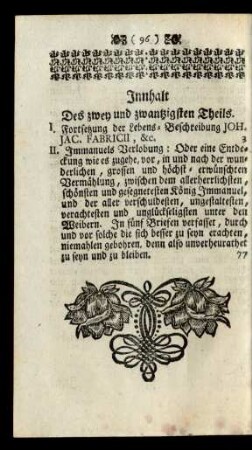 ( 96. )
Innhalt
Des zwey und zwantzigsten Theils.
I. Fortsetzung der Lebens-Beschreibung JOH.
JAC. FABRICII, &c. 3
II. Immanuels Verlobung: Oder eine Entde-
ckung wie es zugehe, vor, in und nach der wun-
derlichen, grossen und höchst-erwünschten
Vermählung, zwischen dem allerherrlichsten,
schönsten und gesegnetesten König Immanuel,
und der aller verschuldesten, ungestaltesten,
verachtesten und unglückseligsten unter den
Weibern. In fünf Briefen verfasset, durch
und vor solche die sich besser zu seyn erachten,
niemahlen gebohren, denn also unverheurathet
zu seyn und zu bleiben. 77